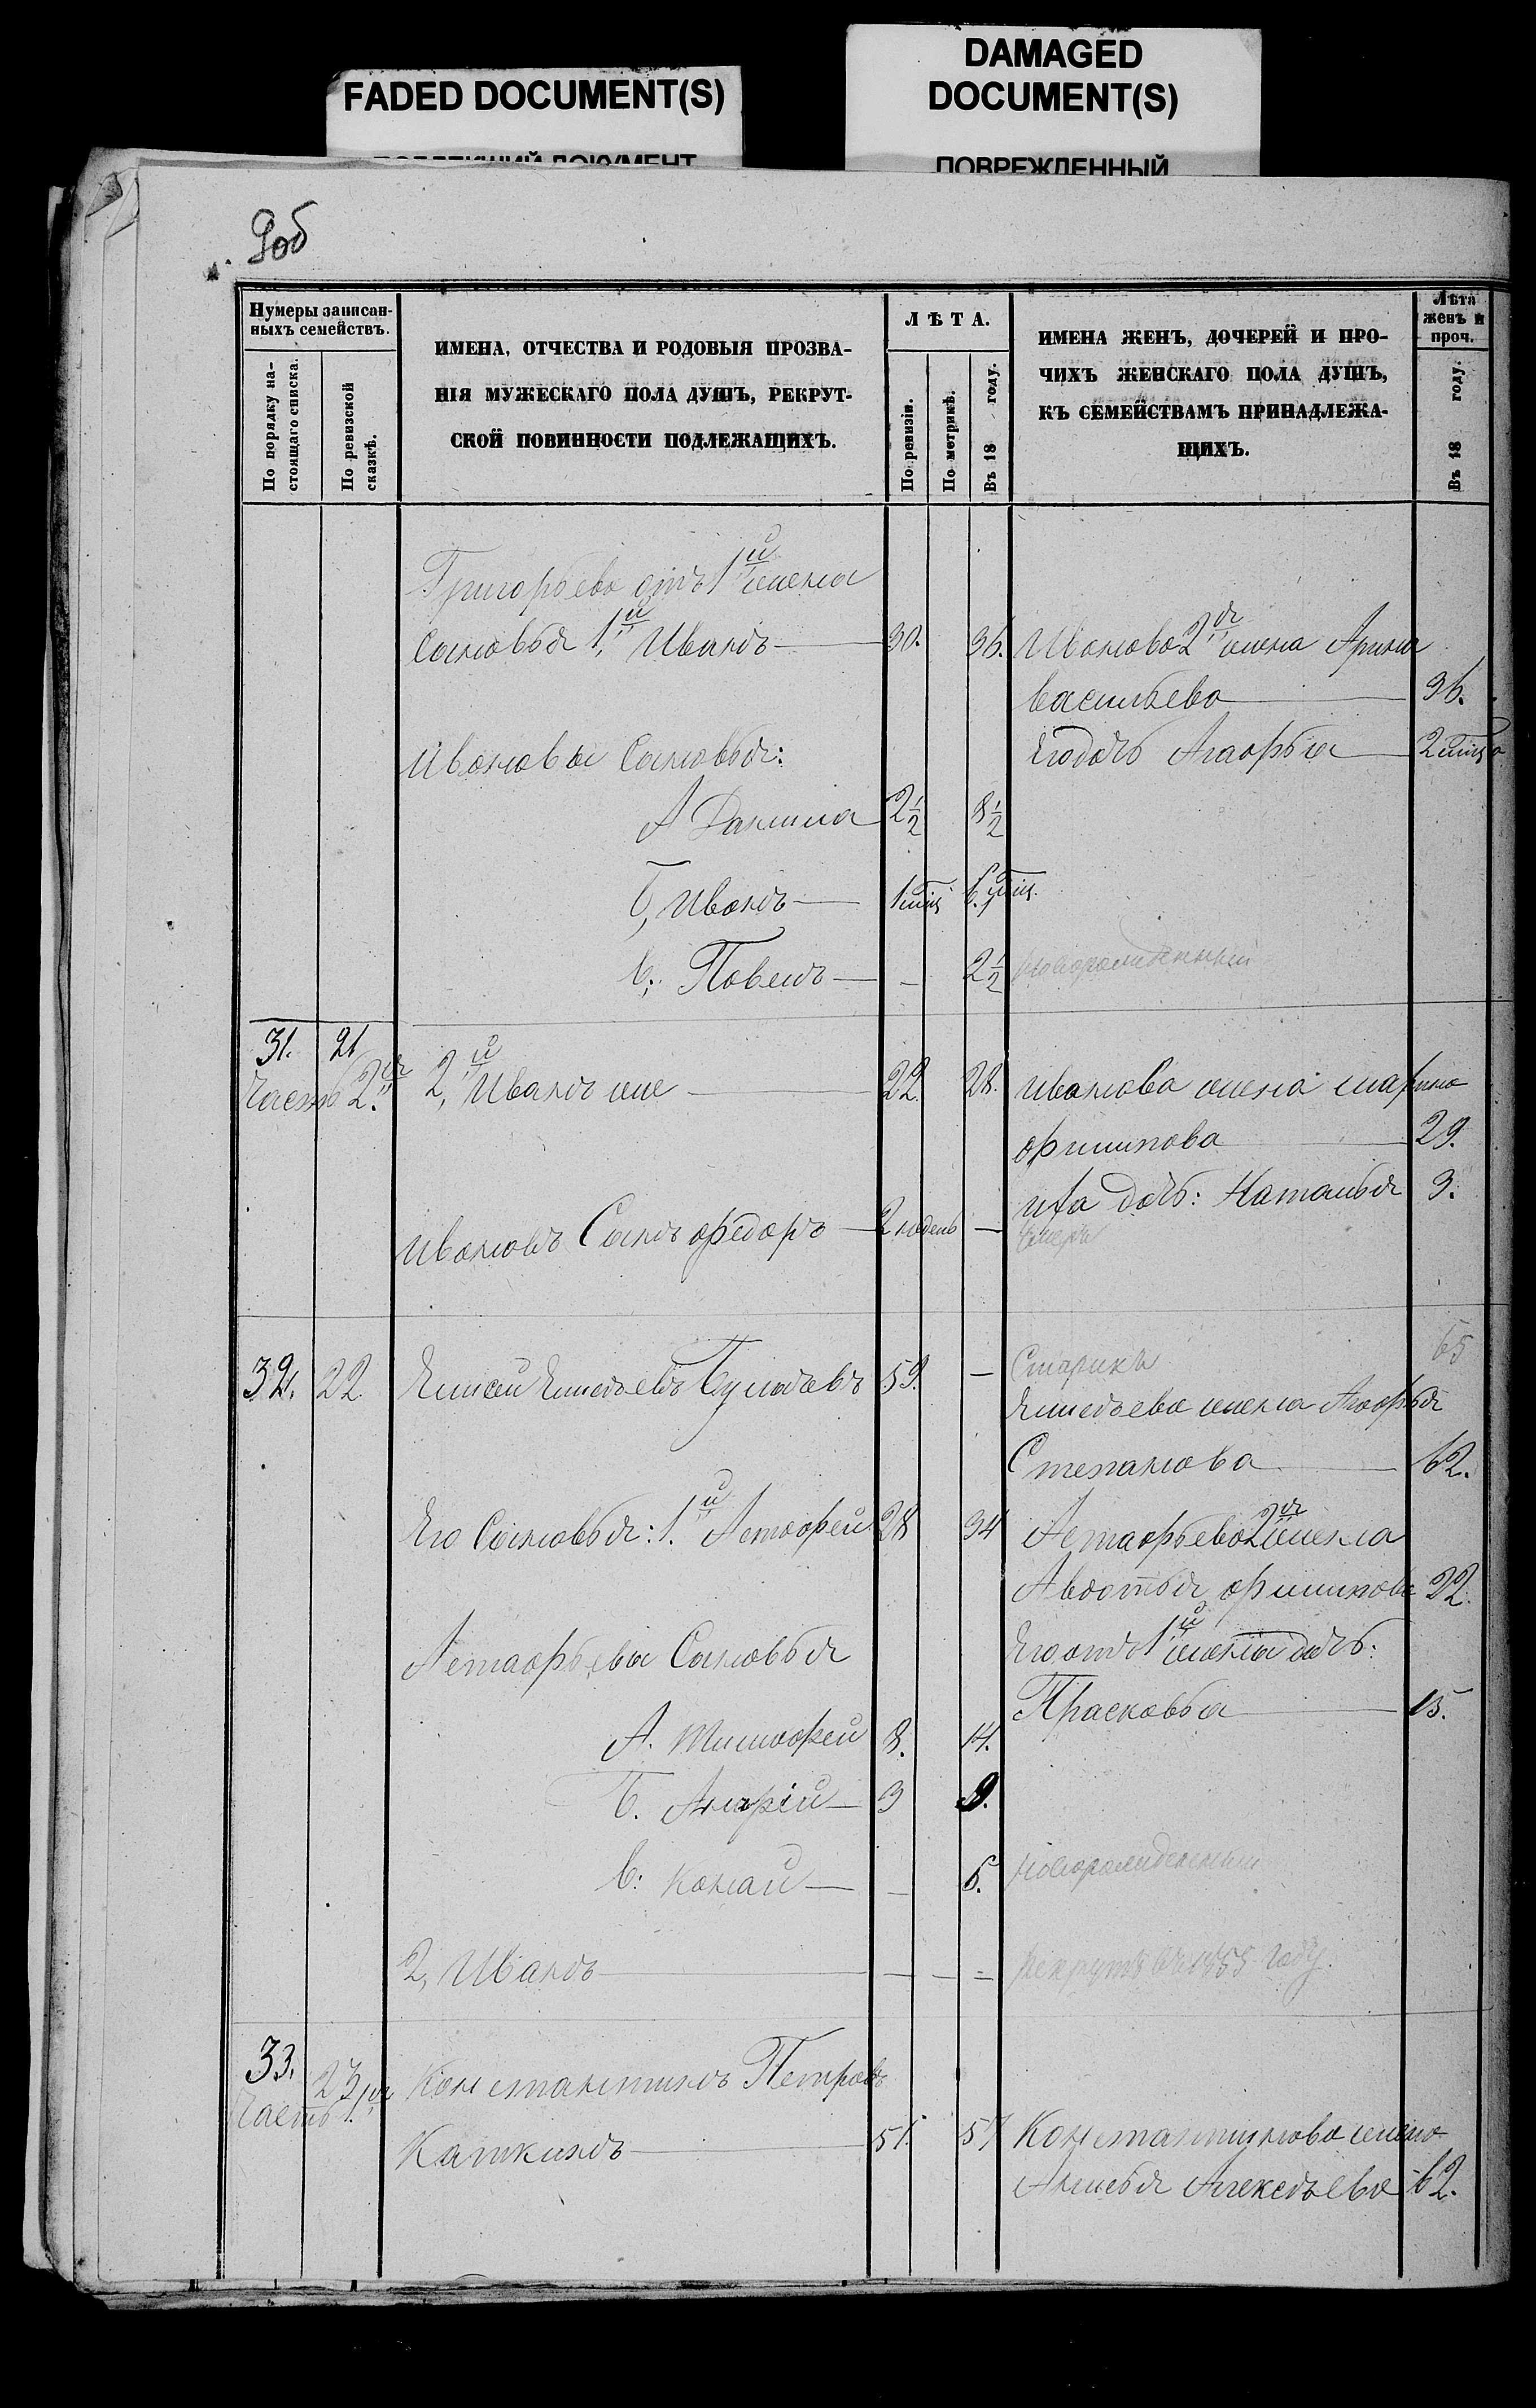 FADED DOCUMENT(S)
DAMAGED
DOCUMENT(S)
ПОВРЕЖДЕННЫЙ
9об
Нумеры записан-
ныхъ семействъ.
По порядку на-
стоящаго списка.
По ревизской
сказкѣ.
ИМЕНА, ОТЧЕСТВА И РОДОВЫЯ ПРОЗВА-
НІЯ МУЖЕСКАГО ПОЛА ДУШЪ, РЕКРУТ-
СКОЙ ПОВИННОСТИ ПОДЛЕЖАЩИХЪ.
ЛѢТА.
По ревизіи.
По метрикѣ.
Въ 18 году.
ИМЕНА ЖЕНЪ, ДОЧЕРЕЙ И ПРО-
ЧИХЪ ЖЕНСКАГО ПОЛА ДУШЪ,
КЪ СЕМЕЙСТВАМЪ ПРИНАДЛЕЖА-
ЩИХЪ.
Лѣта
женъ и
проч.
Въ 18 году.
Григорьева отъ 1й жены
Сыновья 1й, Иванъ 30. 36. Иванова 2я жена Арина
Васильева 36.
Ивановы Сыновья: Его дочь Агафья
А Данила 2½ 8½
Б, Иванъ
В; Павелъ — 2½ новорожденный
31. 21 2,й Иванъ же 22. 28. Иванова жена Марина
Часть 2я.
Филипова 29.
Ихъ дочь: Наталья 9.
Ивановъ Сынъ Федоръ 2 недель — умеръ
32. 22 Елисей Булатовъ 59. — Старикъ 65
жена Агафья
Степанова 62.
Его Сыновья: 1.й Астафей 28 34 Астафьева 2я жена
Авдотья Филипова 22.
Астафьевы Сыновья Его отъ 1й жены дочь:
Прасковья 15.
А. Тимофей 8. 14.
Б. 3 9.
В: Конай — 5. новорожденный
2, Иванъ — — = рекрутъ въ 1855 году.
33. 23 Константинъ Петровъ
Часть 1.я
Каткинъ 51. 57 Константинова жена
Алексѣева 62.